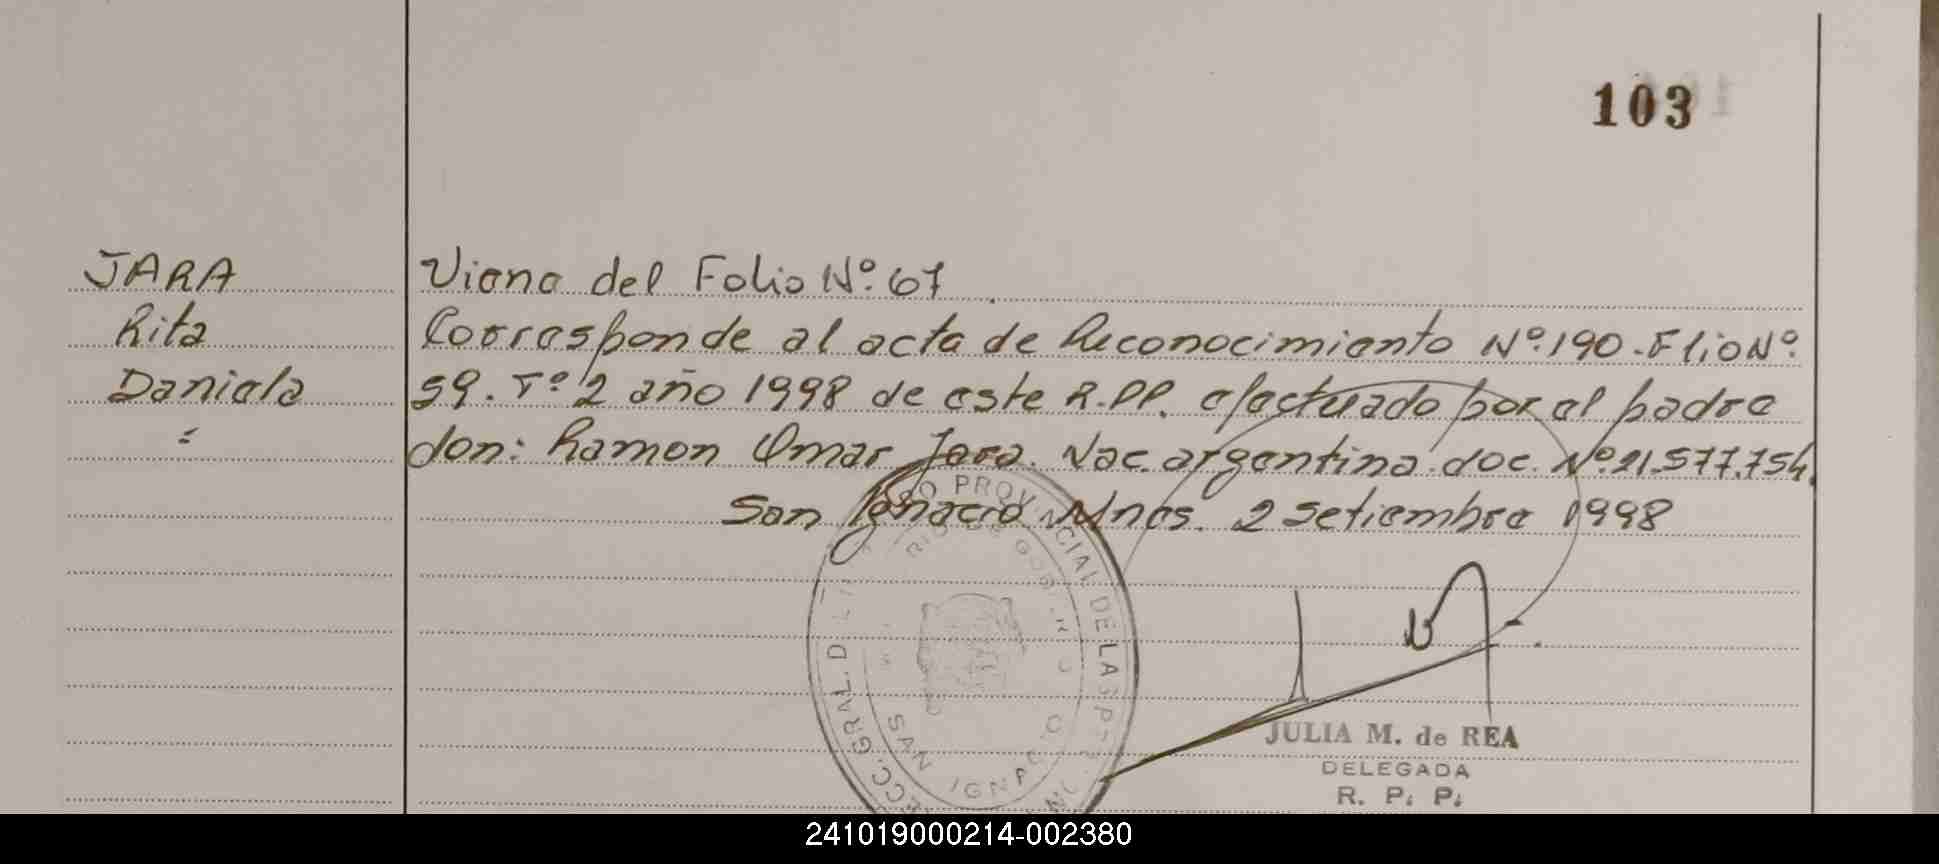 103
JARA
Rita
Daniela
=
Viene del Folio Nº. 67
Corresponde al acta de Reconocimiento Nº. 190. Flio Nº.
59. Tº. 2 año 1998 de este R.PP. efectuado por el padre
don: Ramon Omar Jara. Nac. argentina. doc. Nº. 21.577.754.
San Ignacio Mnes. 2 Setiembre 1998
PROVINCIAL DE LAS P
GRAL. D
SAN IGNACIO
JULIA M. de REA
DELEGADA
R. P. P.
241019000214-002380